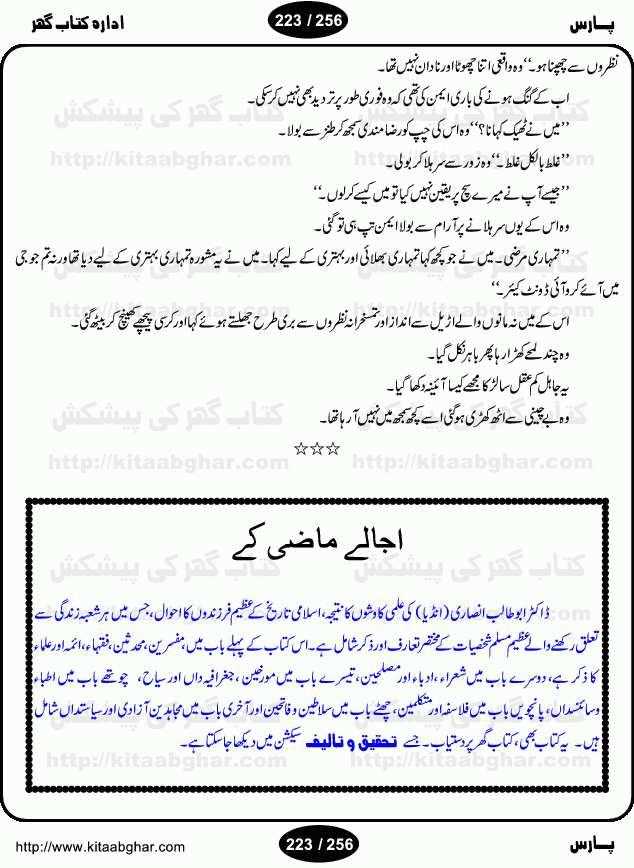 پارس
223 / 256
ادارہ کتاب گھر
نظروں سے چھپنا ہو۔‘‘ وہ واقعی اتنا چھوٹا اور نادان نہیں تھا۔
اب کے گنگ ہونے کی باری ایمن کی تھی کہ وہ فوری طور پر تردید بھی نہیں کرسکی۔
’’میں نے ٹھیک کہا نا؟‘‘ وہ اس کی چپ کو رضا مندی سمجھ کر طنز سے بولا۔
’’غلط بالکل غلط۔‘‘ وہ زور سے سر ہلا کر بولی۔
’’جیسے آپ نے میرے سچ پر یقین نہیں کیا تو میں کیسے کرلوں۔‘‘
وہ اس کے یوں سر ہلانے پر آرام سے بولا ایمن تپ ہی تو گئی۔
’’تمہاری مرضی۔ میں نے جو کچھ کہا تمہاری بھلائی اور بہتری کے لیے کہا۔ میں نے یہ مشورہ تمہاری بہتری کے لیے دیا تھا ورنہ تم جو جی
میں آئے کرو آئی ڈونٹ کیئر۔‘‘
اس کے میں نہ مانوں والے اڑیل سے انداز اور تمسخرانہ نظروں سے بری طرح جھلتے ہوئے کہا اور کرسی پیچھے کھینچ کر بیٹھ گئی۔
وہ چند لمحے کھڑا رہا پھر باہر نکل گیا۔
یہ جاہل کم عقل سا لڑکا مجھے کیسا آئینہ دکھا گیا۔
وہ بے چینی سے اٹھ کھڑی ہوگئی اسے کچھ سمجھ میں نہیں آرہا تھا۔
☆☆☆
اجالے ماضی کے
ڈاکٹر ابو طالب انصاری (انڈیا) کی علمی کاوشوں کا نتیجہ، اسلامی تاریخ کے عظیم فرزندوں کا احوال، جس میں ہر شعبہ زندگی سے
تعلق رکھنے والے عظیم مسلم شخصیات کے مختصر تعارف اور ذکر شامل ہے۔ اس کتاب کے پہلے باب میں، مفسرین، محدثین، فقہاء، ائمہ اور علماء
کا ذکر ہے، دوسرے باب میں شعراء، ادباء اور مصلحین، تیسرے باب میں مورخین، جغرافیہ داں اور سیاح، چوتھے باب میں اطباء
و سائنسداں، پانچویں باب میں فلاسفہ اور متکلمین، چھٹے باب میں سلاطین و فاتحین اور آخری باب میں مجاہدین آزادی اور سیاستداں شامل
ہیں۔ یہ کتاب بھی، کتاب گھر پر دستیاب۔ جسے تحقیق و تالیف سیکشن میں دیکھا جاسکتا ہے۔
کتاب گھر کی پیشکش کتاب گھر کی پیشکش
http://kitaabghar.com http://kitaabghar.com
http://kitaabghar.com http://kitaabghar.com
کتاب گھر کی پیشکش کتاب گھر کی پیشکش
http://kitaabghar.com http://kitaabghar.com
کتاب گھر کی پیشکش کتاب گھر کی پیشکش
http://kitaabghar.com http://kitaabghar.com
http://www.kitaabghar.com
223 / 256
پارس